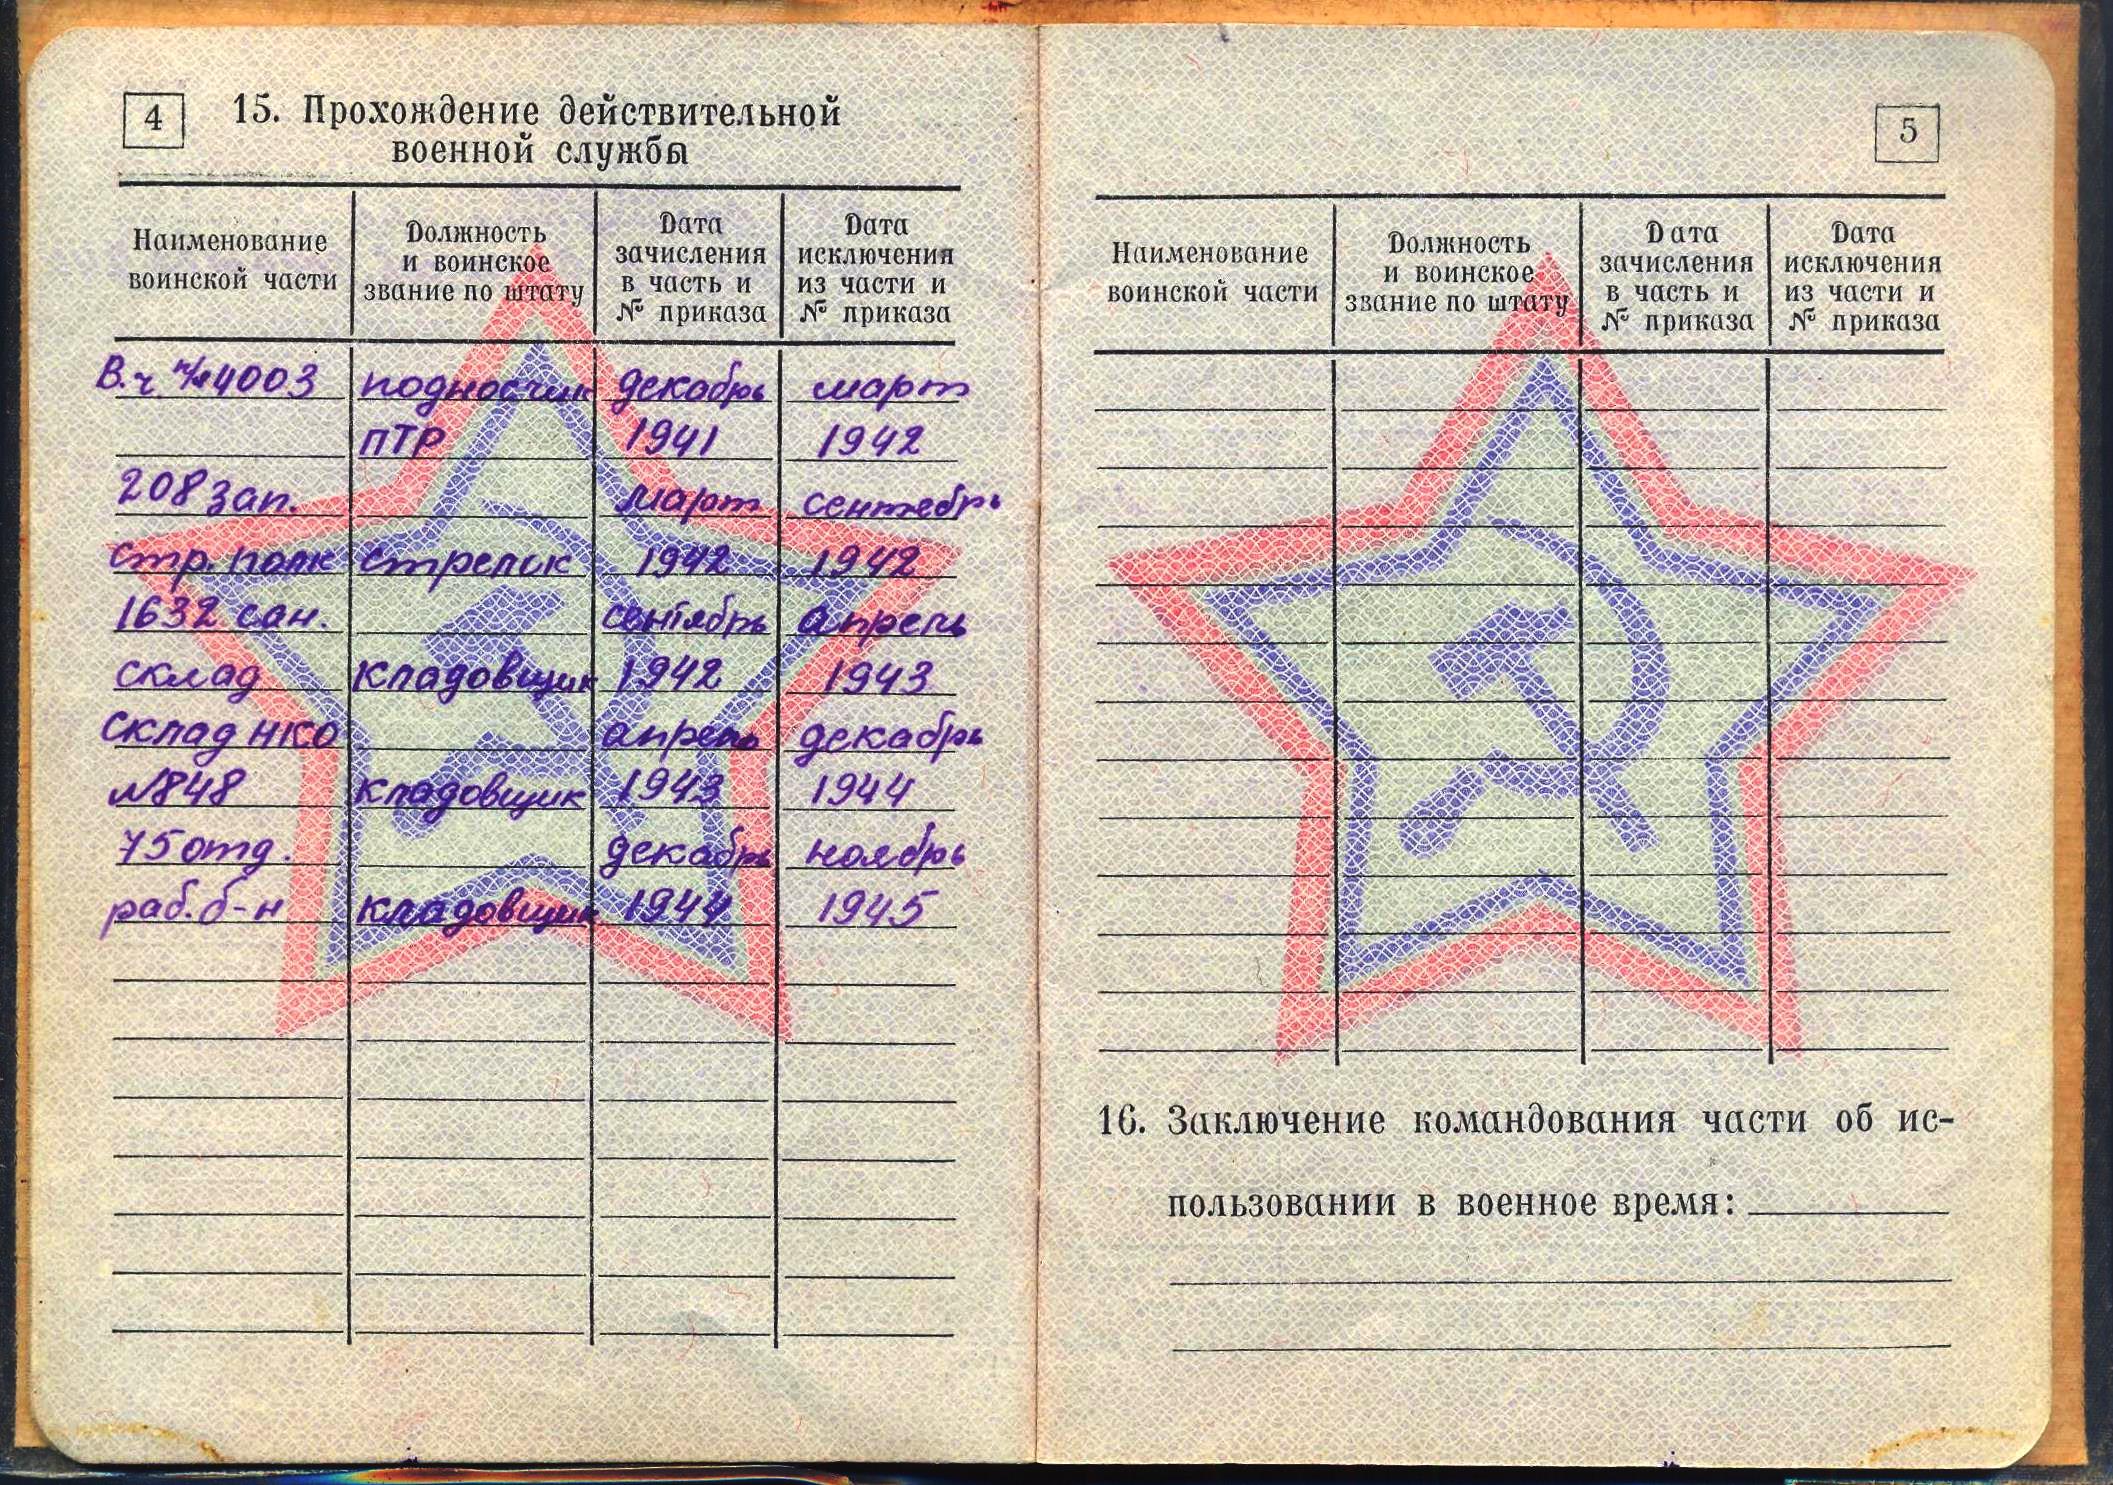 4
15. Прохождение действительной
военной службы
Наименование
воинской части
Должность
и воинское
звание по штату
Дата
зачисления
в часть и
№ приказа
Дата
исключения
из части и
№ приказа
В.ч. п/п 4003 подносчик декабрь март
ПТР 1941 1942
208 зап. март сентебрь
стр. полк стрелок 1942 1942
1632 сан. сентябрь апрель
склад кладовщик 1942 1943
склад НКО апрель декабрь
№848 кладовщик 1943 1944
75 отд. декабрь ноябрь
раб. б-н кладовщик 1944 1945
5
Наименование
воинской части
Должность
и воинское
звание по штату
Дата
зачисления
в часть и
№ приказа
Дата
исключения
из части и
№ приказа
16. Заключение командования части об ис-
пользовании в военное время: